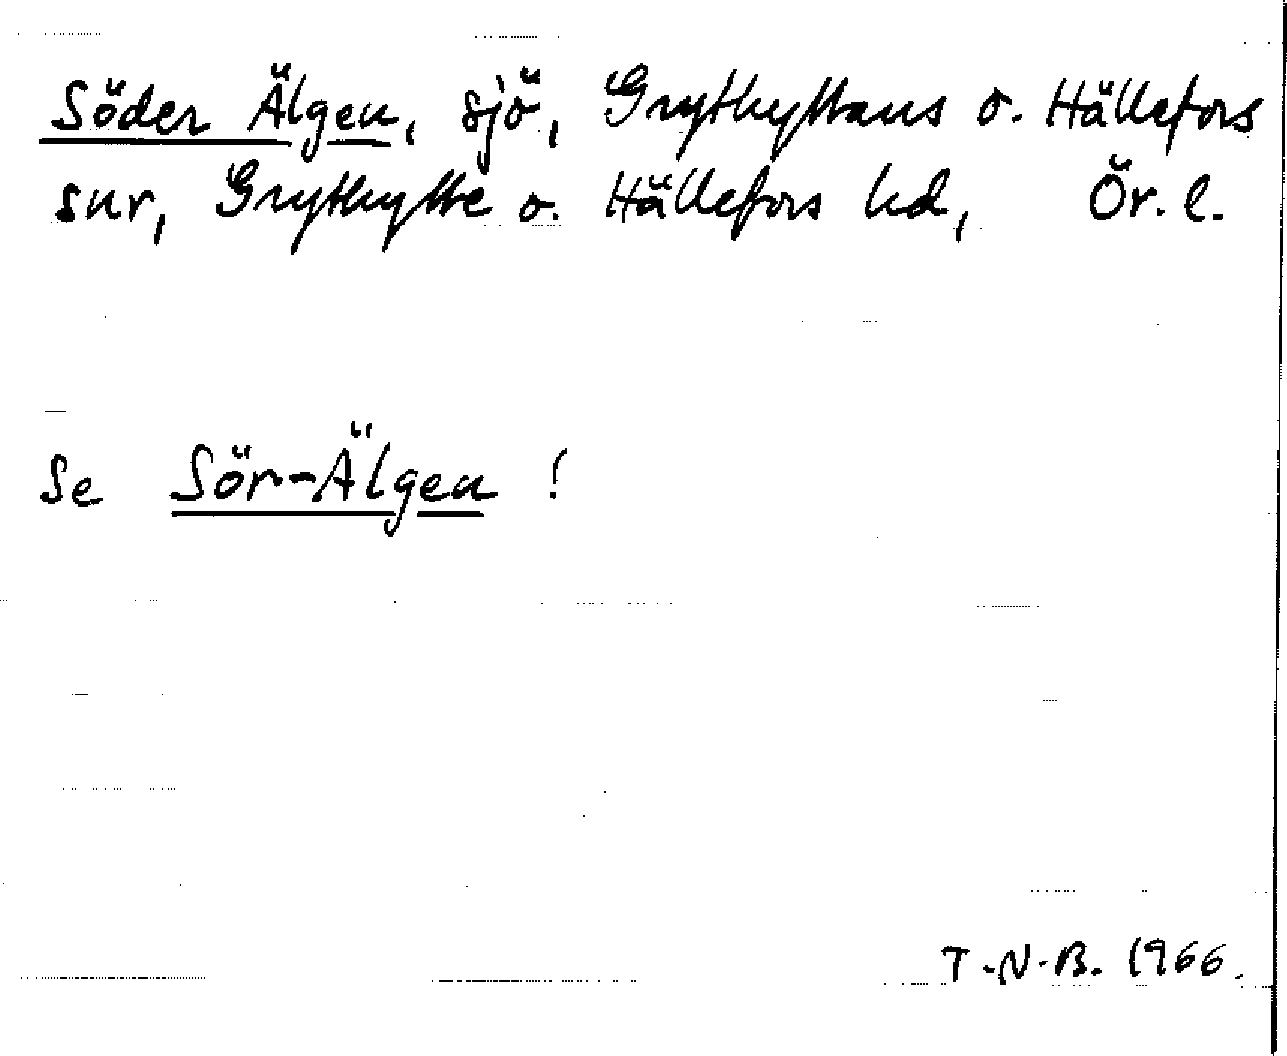 Söder Älgen, sjö, Grythyttans o. Hällefors
snr, Grythytte o. Hällefors hd, Ör. l.
Se Sör-Älgen !
T.N.B. 1966.